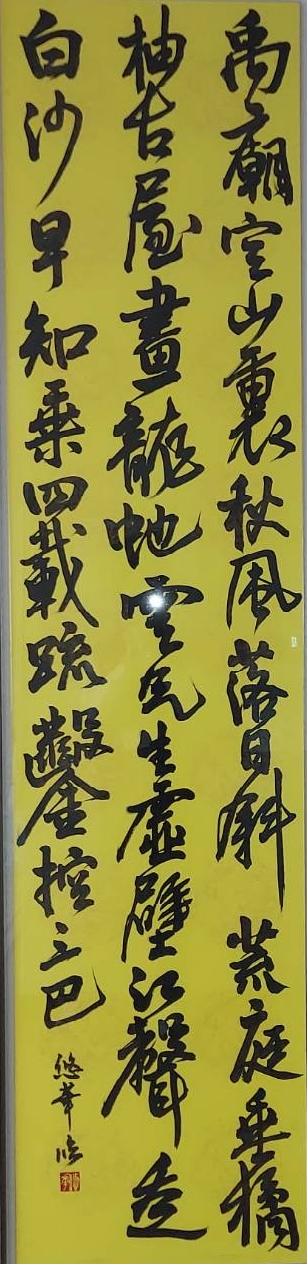 禹廟空山裏秋風落日斜荒庭垂橘
柚古屋畫龍虵雲气生虛壁江聲走
白沙早知乘四載疏鑿控三巴
悠華